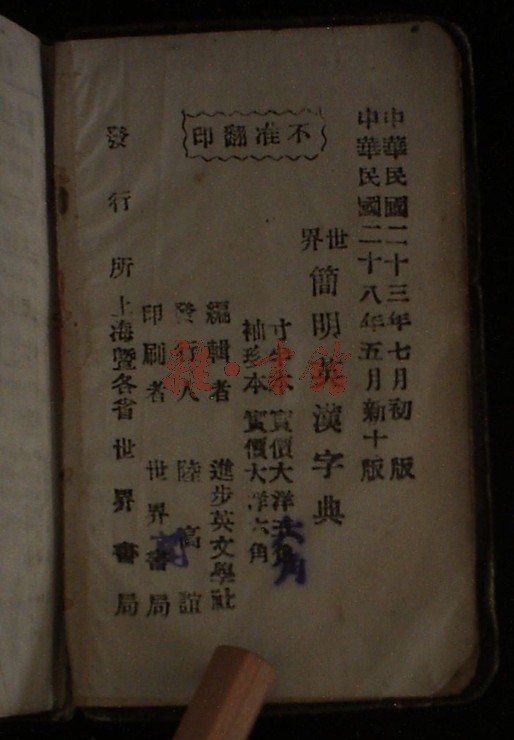 中華民國二十三年七月初版
中華民國二十八年五月新十版
世界
簡明英漢字典
寸半本 實價大洋五角
六角
袖珍本 實價大洋六角
不准翻印
編輯者 進步英文學社
發行人 陸高誼
印刷者 世界書局
發行所 上海暨各省世界書局
書館